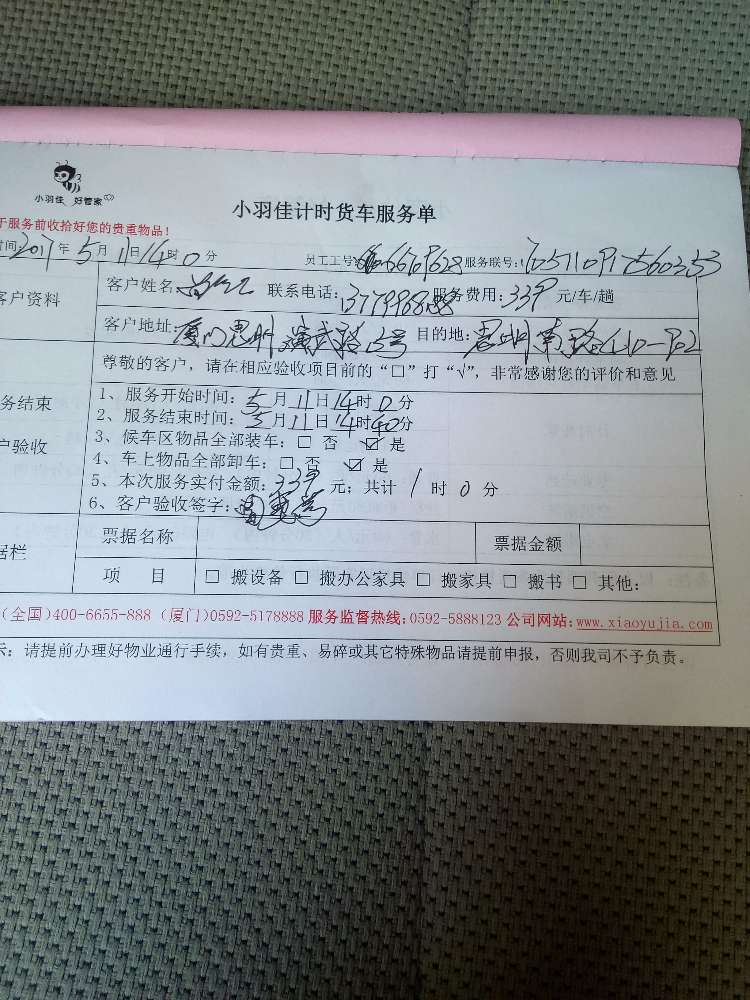 小羽佳 好管家
小羽佳计时货车服务单
于服务前收拾好您的贵重物品!
时间:2017年5月11日14时0分 员工工号 服务联号:
客户资料 客户姓名: 联系电话: 服务费用:339元/车/趟
客户地址:厦门思明演武路 号 目的地:思明南路410-902
尊敬的客户,请在相应验收项目前的“□”打“√”,非常感谢您的评价和意见
务结束
户验收
1、服务开始时间:5月11日14时0分
2、服务结束时间:5月11日14时40分
3、候车区物品全部装车:□ 否 ☑ 是
4、车上物品全部卸车:□ 否 ☑ 是
5、本次服务实付金额:339元;共计1时0分
6、客户验收签字:
据栏 票据名称 票据金额
项 目 □ 搬设备 □ 搬办公家具 □ 搬家具 □ 搬书 □ 其他:
(全国)400-6655-888 (厦门)0592-5178888 服务监督热线:0592-5888123 公司网站:www.xiaoyujia.com
示:请提前办理好物业通行手续,如有贵重、易碎或其它特殊物品请提前申报,否则我司不予负责。